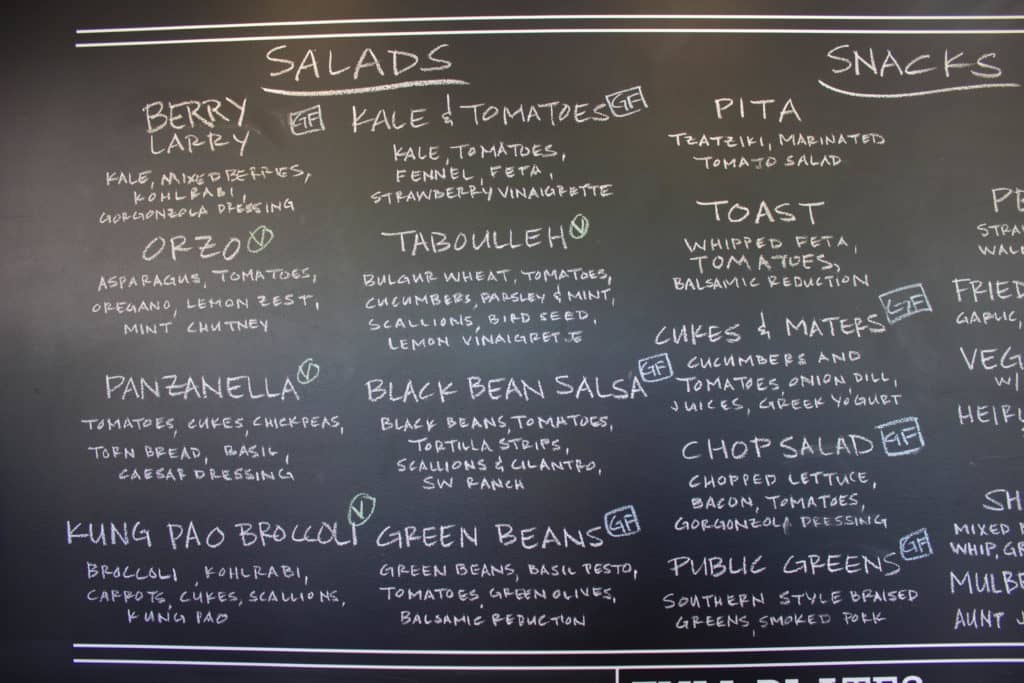 SALADS
BERRY
LARRY GF
KALE, MIXED BERRIES,
KOHLRABI,
GORGONZOLA DRESSING
ORZO V
ASPARAGUS, TOMATOES,
OREGANO, LEMON ZEST,
MINT CHUTNEY
PANZANELLA V
TOMATOES, CUKES, CHICKPEAS,
TORN BREAD, BASIL,
CAESAR DRESSING
KUNG PAO BROCCOLI V
BROCCOLI, KOHLRABI,
CARROTS, CUKES, SCALLIONS,
KUNG PAO
KALE & TOMATOES GF
KALE, TOMATOES,
FENNEL, FETA,
STRAWBERRY VINAIGRETTE
TABOULLEH V
BULGUR WHEAT, TOMATOES,
CUCUMBERS, PARSLEY & MINT,
SCALLIONS, BIRD SEED,
LEMON VINAIGRETTE
BLACK BEAN SALSA GF
BLACK BEANS, TOMATOES,
TORTILLA STRIPS,
SCALLIONS & CILANTRO,
SW RANCH
GREEN BEANS GF
GREEN BEANS, BASIL PESTO,
TOMATOES, GREEN OLIVES,
BALSAMIC REDUCTION
SNACKS
PITA
TZATZIKI, MARINATED
TOMATO SALAD
TOAST
WHIPPED FETA,
TOMATOES,
BALSAMIC REDUCTION
CUKES & MATERS GF
CUCUMBERS AND
TOMATOES, ONION, DILL,
JUICES, GREEK YOGURT
CHOP SALAD GF
CHOPPED LETTUCE,
BACON, TOMATOES,
GORGONZOLA DRESSING
PUBLIC GREENS GF
SOUTHERN STYLE BRAISED
GREENS, SMOKED PORK
PE
STRA
WAL
FRIED
GARLIC,
VEG
W/
HEIRL
SH
MIXED
WHIP, GR
MULBE
AUNT J